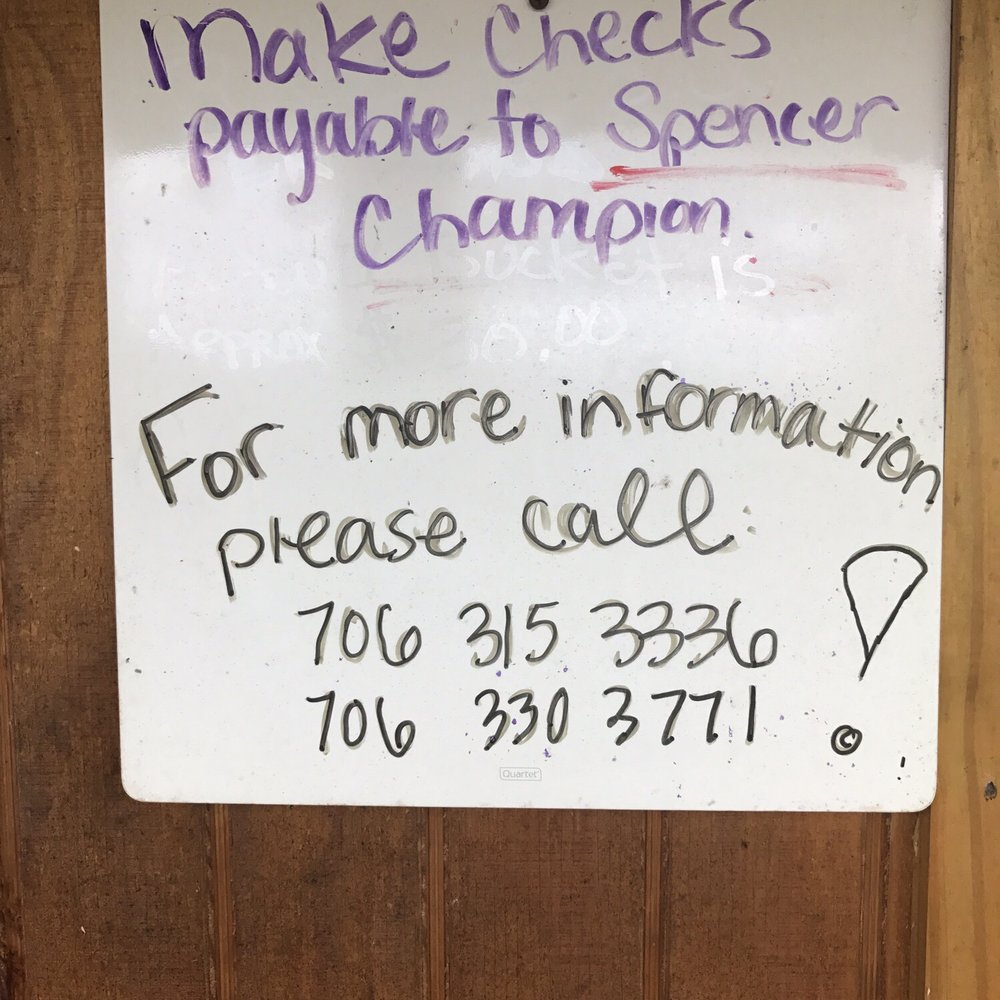 Make Checks
payable to Spencer
Champion.
bucket is
Approx
For more information
please call:
706 315 3336
706 330 3771
©
Quartet